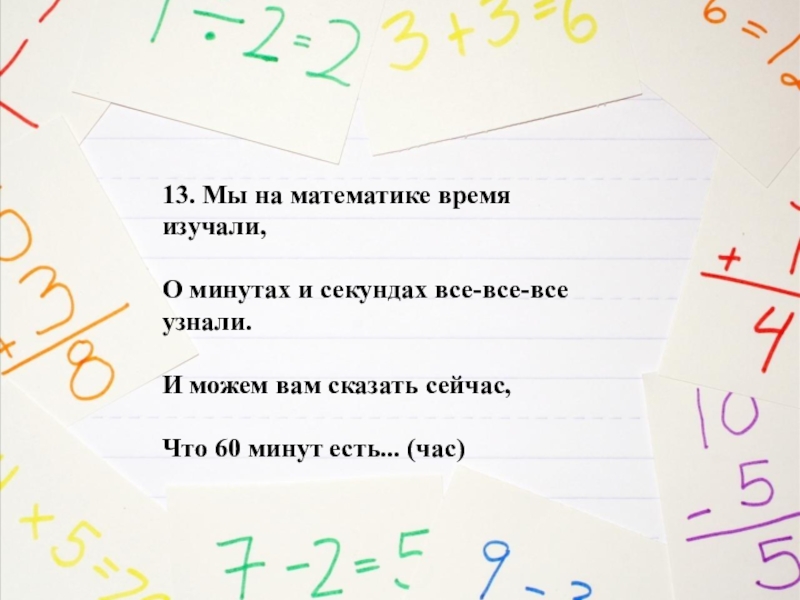 1 ÷ 2 = 2
3 + 3 = 6
6 =
13. Мы на математике время
изучали,
О минутах и секундах все-все-все
узнали.
И можем вам сказать сейчас,
Что 60 минут есть... (час)
3
8
+
4
10
- 5
5
+ 5 =
7 - 2 = 5
9 -